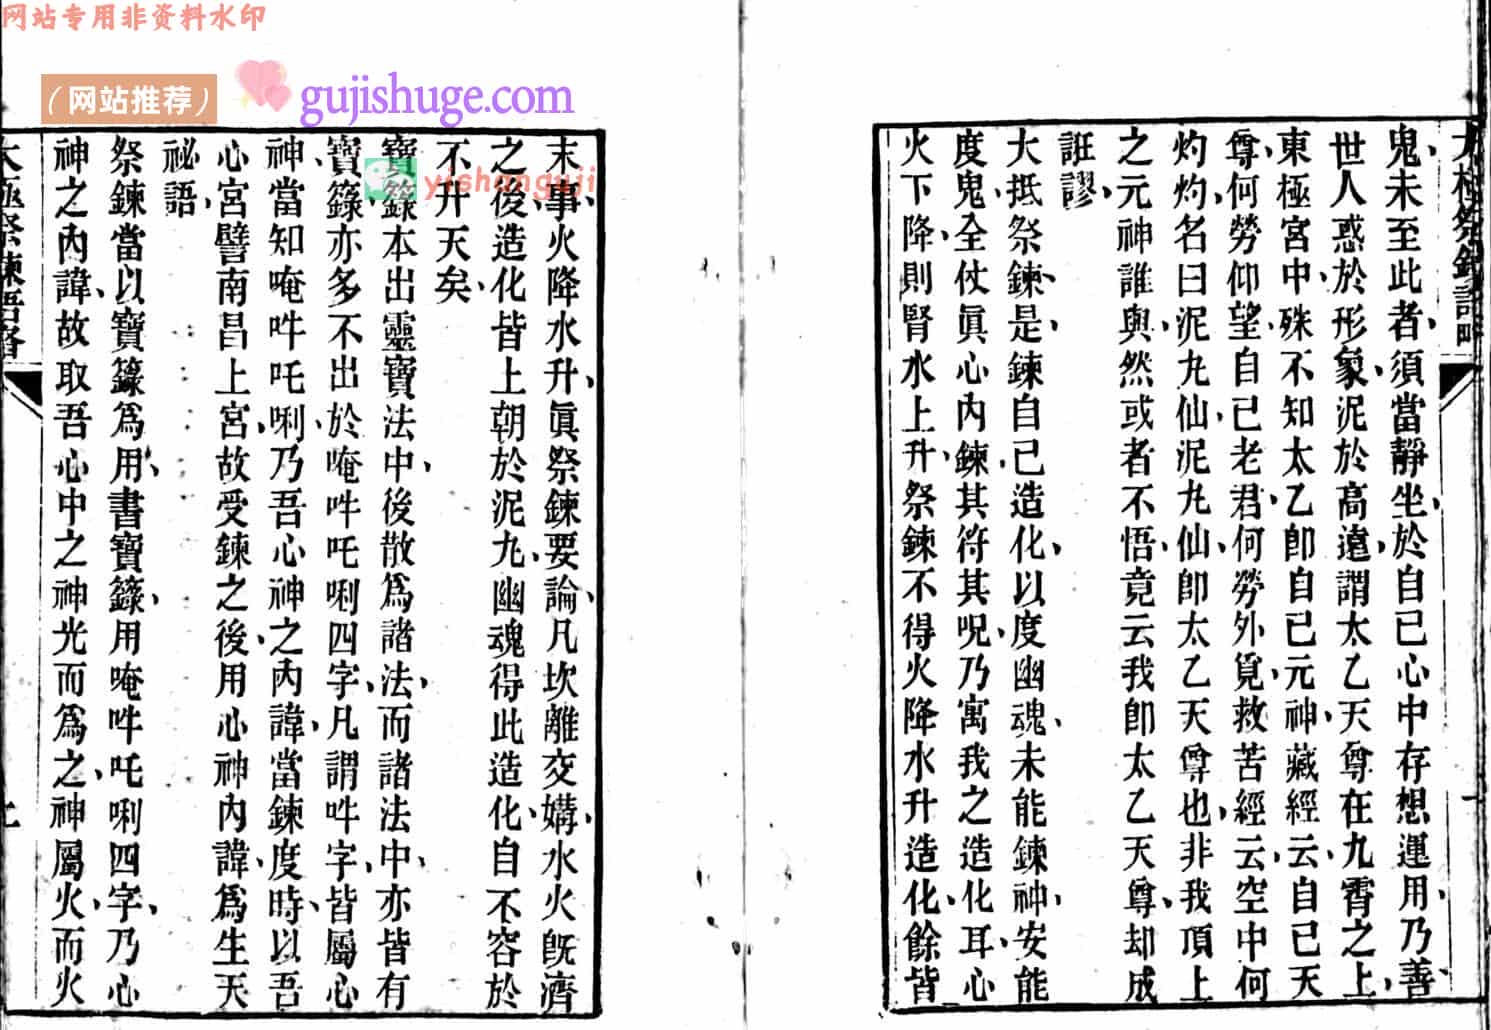 网站专用非资料水印
（网站推荐）
gujishuge.com
yishanguji
鬼、未至此者、須當靜坐、於自己心中存想運用、乃善
世人惑於形象、泥於高遠、謂太乙天尊在九霄之上、
東極宮中、殊不知太乙卽自己元神、藏經云、自己天
尊、何勞仰望、自己老君、何勞外覓、救苦經云、空中何
灼灼、名曰泥丸仙、泥丸仙、卽太乙天尊也、非我頂上
之元神誰與、然或者不悟、竟云我卽太乙天尊、却成
誑謬、
大抵祭鍊、是鍊自己造化、以度幽魂、未能鍊神、安能
度鬼、全仗眞心內鍊、其符其呪、乃寓我之造化耳、心
火下降、則腎水上升、祭鍊不得火降水升造化、餘皆
末事、火降水升、眞祭鍊要論、凡坎離交媾、水火旣濟
之後、造化皆上朝於泥丸、幽魂得此造化、自不容於
不升天矣、
寶籙本出靈寶法中、後散爲諸法、而諸法中、亦皆有
寶籙、亦多不出於唵吽吒唎四字、凡謂吽字、皆屬心
神、當知唵吽吒唎、乃吾心神之內諱、當鍊度時、以吾
心宮譬南昌上宮、故受鍊之後、用心神內諱、爲生天
祕語、
祭鍊當以寶籙爲用、書寶籙、用唵吽吒唎四字、乃心
神之內諱、故取吾心中之神光而爲之、神屬火、而火
太極祭鍊語畧
上